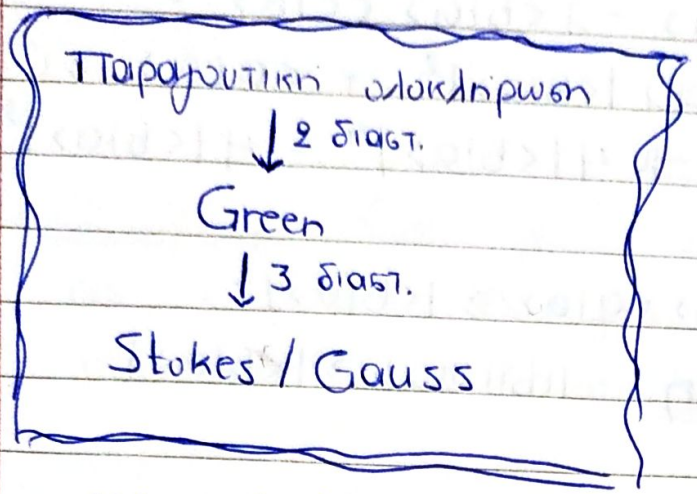 Παραγοντική ολοκλήρωση
↓ 2 διαστ.
Green
↓ 3 διαστ.
Stokes / Gauss